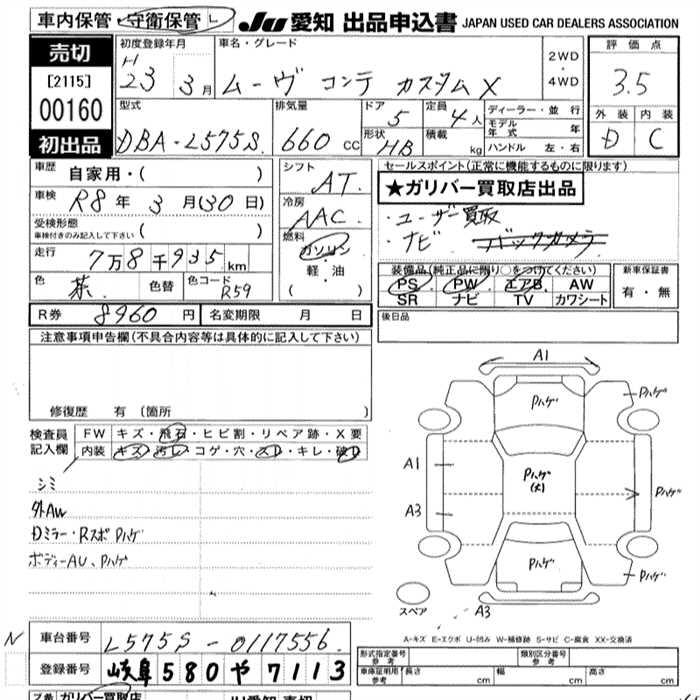 車内保管・守衛保管 L
JU 愛知 出品申込書 JAPAN USED CAR DEALERS ASSOCIATION
売切
[2115]
00160
初出品
初度登録年月
H
23 3月
車名・グレード
ムーヴ コンテ カスタムX
2WD
・
4WD
評価点
3.5
外装 内装
D C
型式
DBA-L575S
排気量
660 cc
ドア
5
定員
4人
形状
HB
積載
kg
ディーラー・並行
モデル年式 年
ハンドル 左・右
車歴
自家用・( )
車検
R8年 3月(30日)
受検形態
車検付きのみ記入して下さい ( )
走行
7万8千935km
色
茶
色替
色コード
R59
シフト
AT
冷房
AAC
燃料
ガソリン
軽・油
( )
セールスポイント(正常に機能するものに限ります)
★ガリバー買取店出品
・ユーザー買取
・ナビ バックカメラ
装備品(純正品に限り○をつけてください)
PS PW エアB AW
SR ナビ TV カワシート
新車保証書
有・無
R券 8960円 名変期限 月 日
後日品
注意事項申告欄(不具合内容等は具体的に記入して下さい)
修復歴 有 (箇所 )
検査員記入欄
FW キズ・飛石・ヒビ割・リペア跡・X要
内装 キズ・汚レ・コゲ・穴・スレ・キレ・破レ
シミ
外AW
Dミラー・Rスポ Pハゲ
ボディーAU、Pハゲ
A1
Pハゲ
Pハゲ
A1
Pハゲ
(大)
Pハゲ
A3
Pハゲ
Pハゲ
スペア
A3
A-キズ E-エクボ U-凹み W-補修跡 S-サビ C-腐食 XX-交換済
N
車台番号 L575S-0117556
登録番号 岐阜 580 や 7113
形式指定番号 参考
類別区分番号 参考
車庫証明用 参考 長さ cm 幅 cm 高さ cm
ガリバー買取店
JU愛知